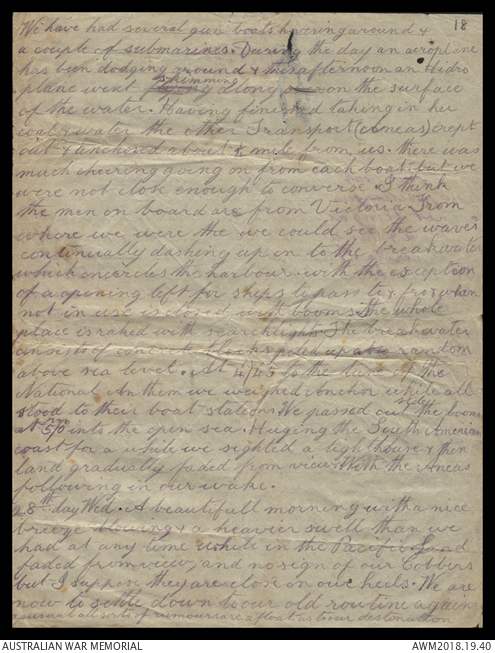 18
We have had several gun boats hovering around &
a couple of submarines. During the day an aeroplane
has been dodging around & this afternoon an Hidro
skimming
plane went along on the surface
of the water. Having finished taking in her
coal & water the other Transport (Aeneas) crept
out & anchored about ½ mile from us. there was
much cheering going on from each boat but we
were not close enough to converse. I think
the men on board are from Victoria. From
where we were the we could see the waves
continually dashing up on to the breakwater
which encircles the harbour. with the exception
of a opening left for ships to pass to & fro & when
not in use is closed with booms. The whole
place is raked with searchlights. The breakwater
consists of concrete blocks piled up at random
above sea level. At 4/45 to the tune of the
National Anthem we weighed Anchor while all
stood to their boat stations. We passed out the boom
at 5/0 pm into the open sea. Huging the South American
coast for a while we sighted a lighthouse & then
land gradually faded from view. With the Aeneas
following in our wake.
28th day Wed. A beautifull morning with a nice
breeze blowing & a heavier swell than we
had at any time while in the Pacific. Land
faded from view, and no sign of our Cobbers
but I suppose they are close on our heels. We are
now to settle down to our old routine again
as usual all sorts of rumours are afloat as to our destination
AUSTRALIAN WAR MEMORIAL
AWM2018.19.40